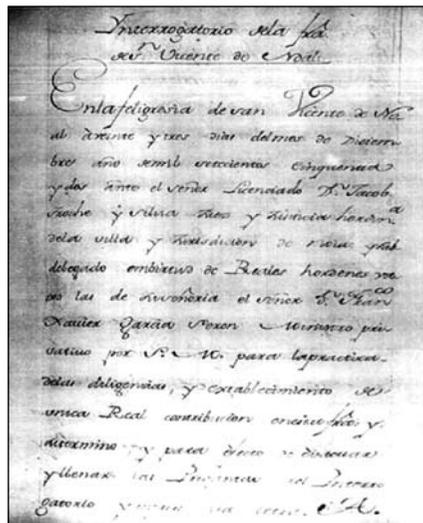 Ynterrogatorio dela fra.
de Sn. Vicente de Noal
Enlafeligresia de san Vicente de No
al átreinte y tres dias delmes de Diciem
bre año demill settecientos cinquenta
y dos Ante el señor Licenciado Dn. Jacob
Froche y Silvia Juez y Justicia hordinª
dela villa y Jurisdicion de Noia y sub
delegado embirtud de Reales hordenes
las de Suseñoria el señor Dn. Francco
Xavier Garcia Ministro pri
vativo por S. M. para lapractica
delas diligencias, y establecimiento de
unica Real contribucion enesta fra. y
sutermino, y para efecto de
yllenar las Preguntas del Ynterro
gatorio